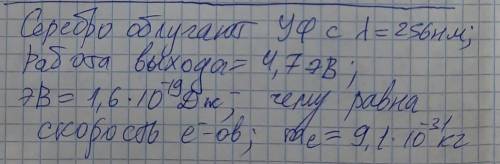 Серебро облучают УФ с λ = 256нм;
Работа выхода = 4,7 эВ;
эВ = 1,6·10⁻¹⁹Дж; чему равна
скорость e⁻-ов; me = 9,1·10⁻³¹кг